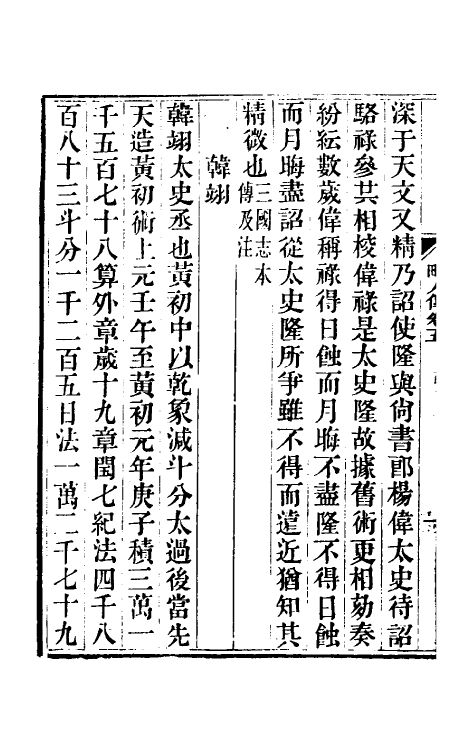 深于天文又精乃詔使隆與尚書郎楊偉太史待詔
駱祿參共相校偉祿是太史隆故據舊術更相劾奏
紛紜數歲偉稱祿得日蝕而月晦不盡隆不得日蝕
而月晦盡詔從太史隆所爭雖不得而遠近猶知其
精微也三國志本傳及注
韓翊
韓翊太史丞也黃初中以乾象減斗分太過後當先
天造黃初術上元壬午至黃初元年庚子積三萬一
千五百七十八算外章歲十九章閏七紀法四千八
百八十三斗分一千二百五日法一萬二千七十九